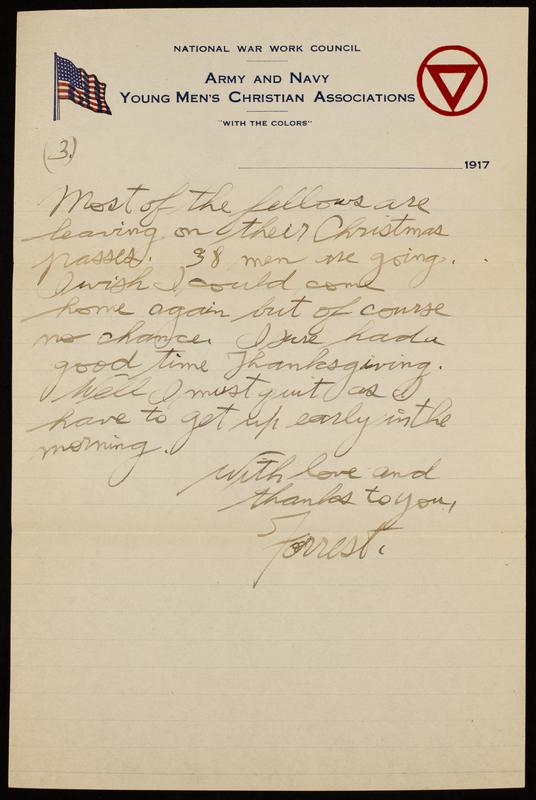 NATIONAL WAR WORK COUNCIL
ARMY AND NAVY
YOUNG MEN'S CHRISTIAN ASSOCIATIONS
"WITH THE COLORS"
(3.)
1917
Most of the fellows are
leaving on their Christmas
passes. 38 men are going.
I wish I could come
home again but of course
no chance. I sure had a
good time Thanksgiving.
Well I must quit as I
have to get up early in the
morning.
With love and
thanks to you,
Forrest.